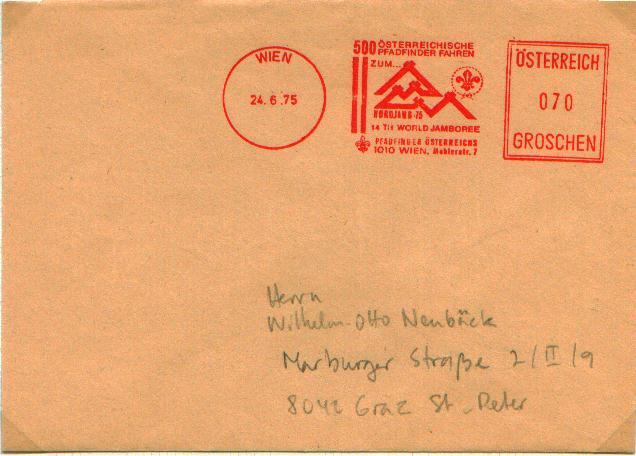 WIEN
24.6.75
500 ÖSTERREICHISCHE
PFADFINDER FAHREN
ZUM...
NORDJAMB-75
14 TH WORLD JAMBOREE
PFADFINDER ÖSTERREICHS
1010 WIEN, Mahlerstr. 7
ÖSTERREICH
070
GROSCHEN
Herrn
Wilhelm-Otto Neubäck
Marburger Straße 2/II/9
8042 Graz St. Peter